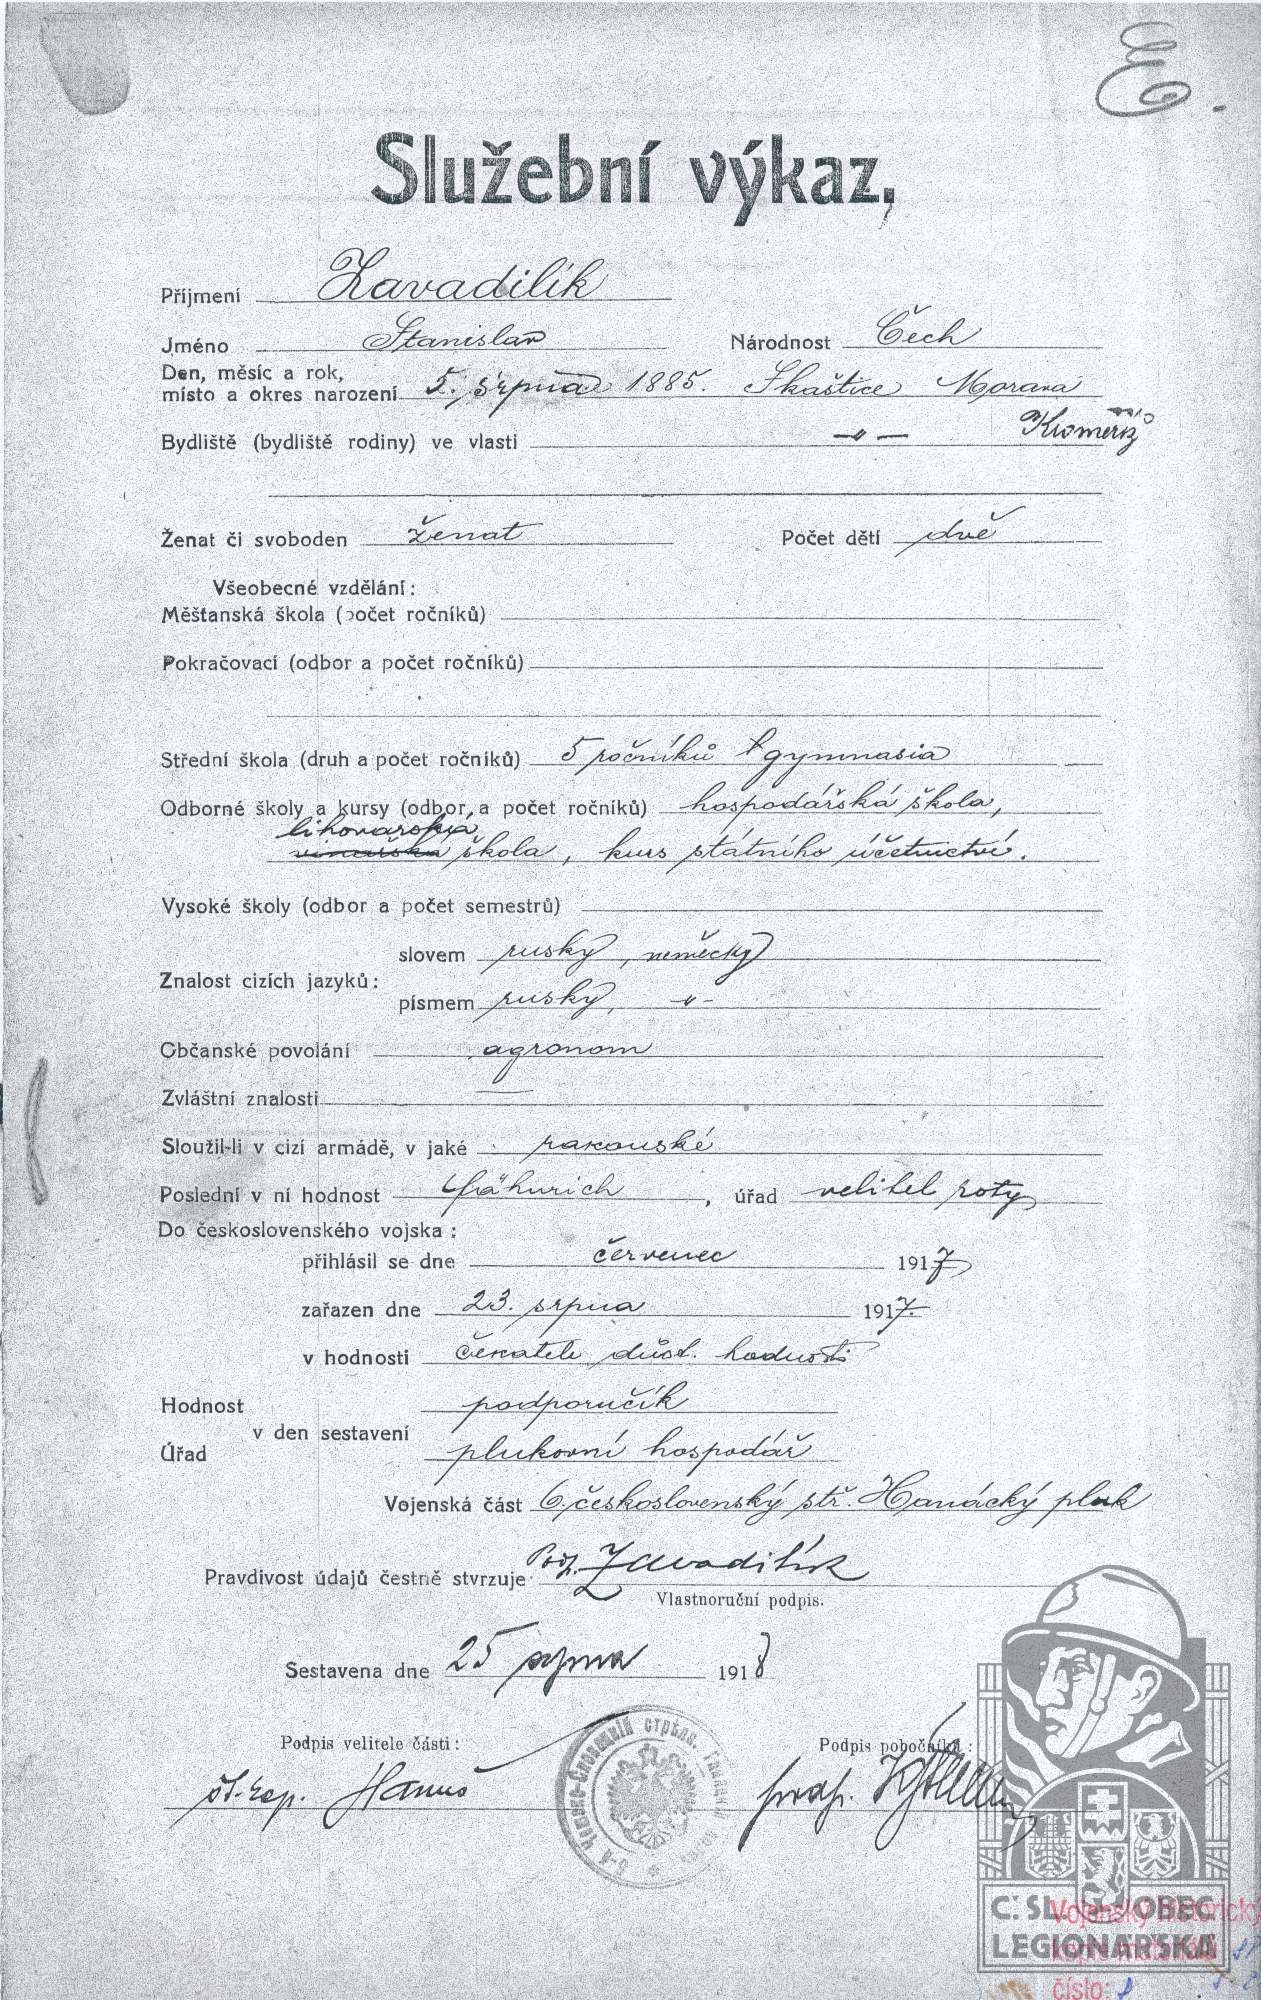 E.
Služební výkaz.
Příjmení Zavadilík
Jméno Stanislav Národnost Čech
Den, měsíc a rok,
místo a okres narození 5. srpna 1885. Skaštice Morava
Bydliště (bydliště rodiny) ve vlasti —„— Kroměříž
Ženat či svoboden ženat Počet dětí dvě
Všeobecné vzdělání:
Měšťanská škola (počet ročníků)
Pokračovací (odbor a počet ročníků)
Střední škola (druh a počet ročníků) 5 ročníků gymnasia
Odborné školy a kursy (odbor, a počet ročníků) hospodářská škola,
lihovarská
vinařská škola, kurs státního účetnictví.
Vysoké školy (odbor a počet semestrů)
slovem rusky, německy
Znalost cizích jazyků:
písmem rusky, —„—
Občanské povolání agronom
Zvláštní znalosti —
Sloužil-li v cizí armádě, v jaké rakouské
Poslední v ní hodnost fähnrich, úřad velitel roty
Do československého vojska:
přihlásil se dne červenec 1917
zařazen dne 23. srpna 1917.
v hodnosti čekatele důst. hodnosti
Hodnost podporučík
v den sestavení
Úřad plukovní hospodář
Vojenská část 6. československý stř. Hanácký pluk
Pravdivost údajů čestně stvrzuje Zavadilík
Vlastnoruční podpis.
Sestavena dne 25 srpna 1918
Podpis velitele části: Podpis pobočníka:
Hanuš
6-й Чешско-Словацкій стрѣлк. Ганацкій полкъ
Č.SL. OBEC
LEGIONÁŘSKÁ
Vojenský historický
kopie materiálu
číslo: